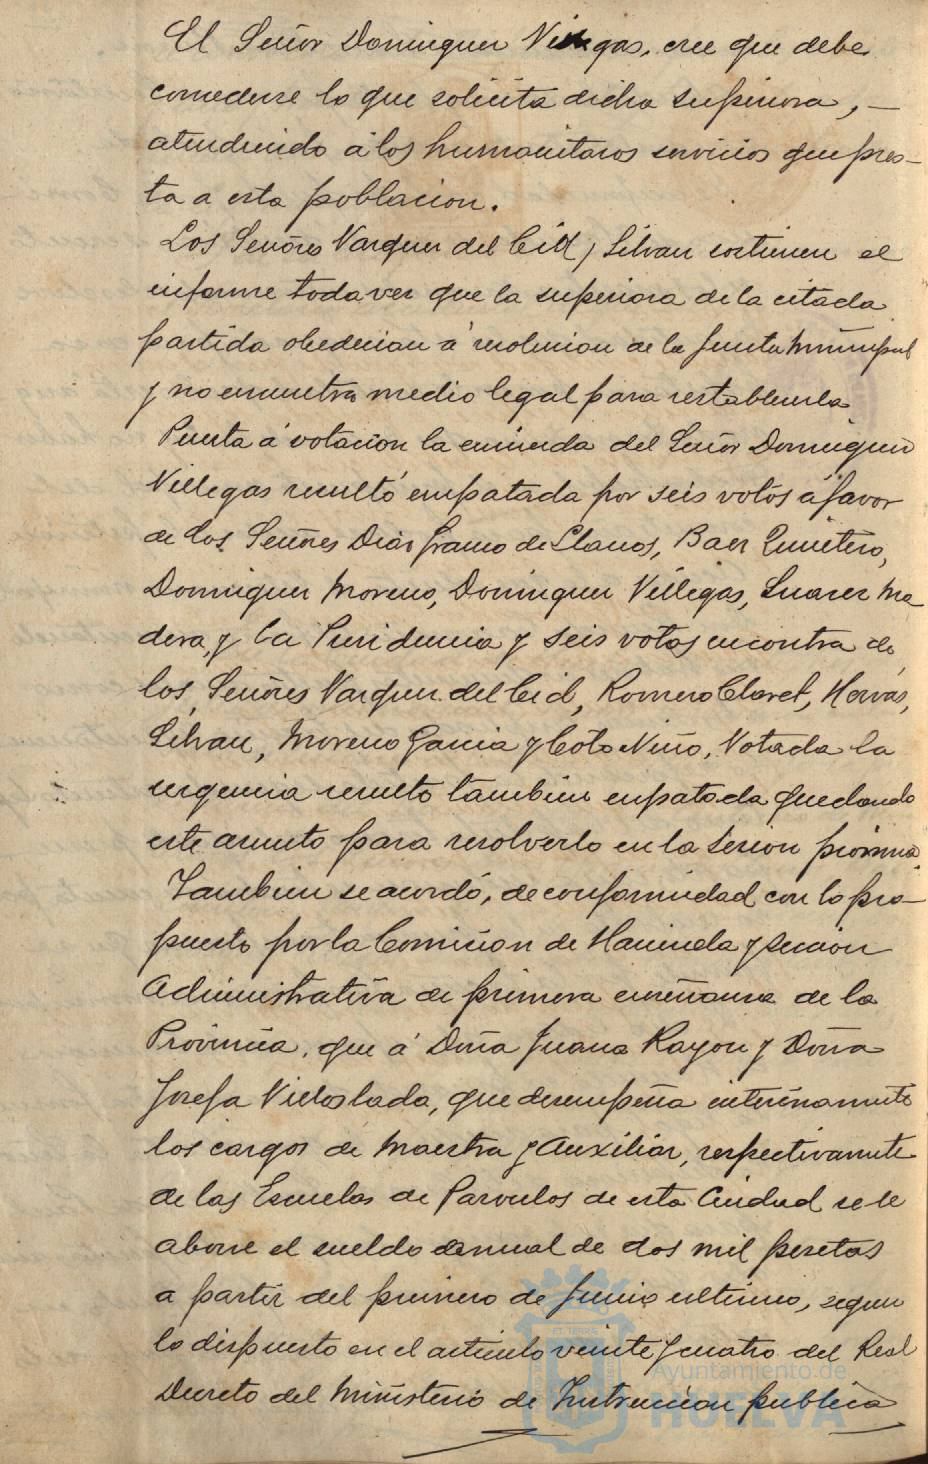 El Señor Dominguez Villegas, cree que debe
concederse lo que solicita dicha superiora, —
atendiendo á los humanitaros servicios que pres-
ta a esta poblacion.
Los Señores Vazquez del Cid y Silvan sostienen el
informe toda vez que la superiora de la citada
partida obedecian á resolucion de la Junta Municipal
y no encuentra medio legal para restablecerla
Puesta á votacion la enmienda del Señor Dominguez
Villegas resultó empatada por seis votos á favor
de los Señores Diaz Franco de Llanos, Baez Quintero,
Dominguez Moreno, Dominguez Villegas, Suarez Ma
dera, y la Presidencia y seis votos encontra de
los Señores Vazquez del Cid, Romero Claret, Hervás,
Silvan, Moreno Garcia y Coto Niño, Votada la
urgencia resulto tambien enpatada quedando
este asunto para resolverlo en la sesion próxima.
Tambien se acordó, de conformidad con lo pro-
puesto por la Comision de Hacienda y Seccion
Administrativa de primera enseñanza de la
Provincia, que á Doña Juana Rayon y Doña
Josefa Villoslada, que desempeña interinamente
los cargos de Maestra y Auxiliar, respectivamente
de las Escuelas de Parvulos de esta Ciudad se le
abone el sueldo anual de dos mil pesetas
a partir del primero de Junio ultimo, segun
lo dispuesto en el articulo veinte y cuatro del Real
Decreto del Ministerio de Instruccion publica
Ayuntamiento de
HUELVA